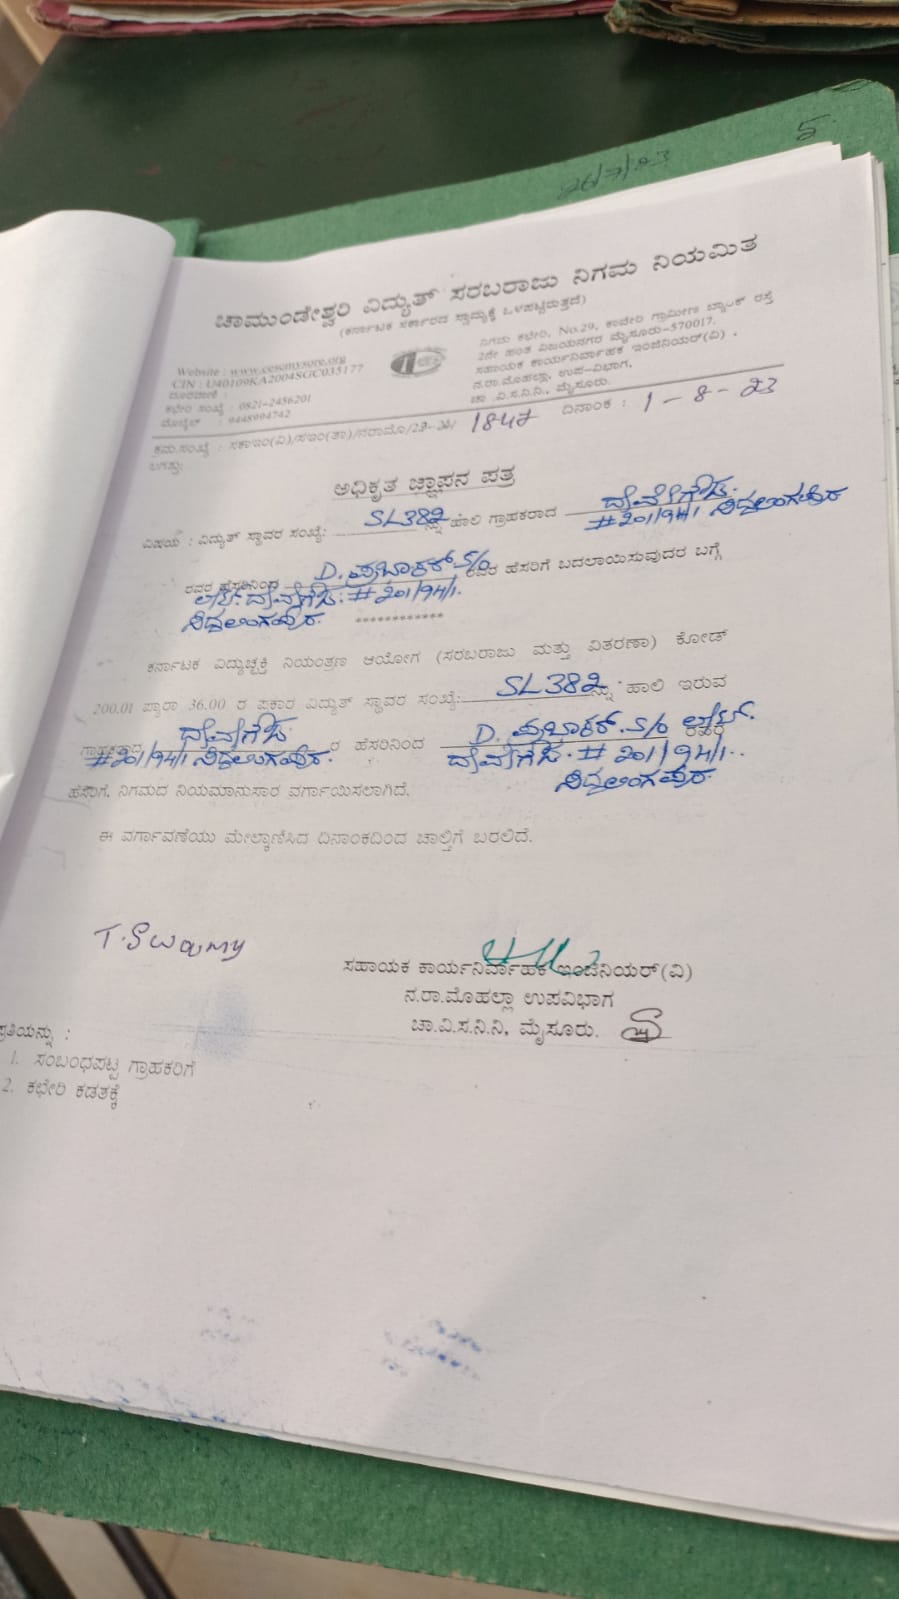 26/7/23
5
ಚಾಮುಂಡೇಶ್ವರಿ ವಿದ್ಯುತ್ ಸರಬರಾಜು ನಿಗಮ ನಿಯಮಿತ
(ಕರ್ನಾಟಕ ಸರ್ಕಾರದ ಸ್ವಾಮ್ಯಕ್ಕೆ ಒಳಪಟ್ಟಿರುತ್ತದೆ)
Website : www.cescmysore.org
CIN : U40109KA2004SGC035177
ದೂರವಾಣಿ :
ಕಛೇರಿ ಸಂಖ್ಯೆ : 0821-2456201
ಮೊಬೈಲ್ : 9448994742
ನಿಗಮ ಕಛೇರಿ, No.29, ಕಾವೇರಿ ಗ್ರಾಮೀಣ ಬ್ಯಾಂಕ್ ರಸ್ತೆ
2ನೇ ಹಂತ ವಿಜಯನಗರ ಮೈಸೂರು-570017.
ಸಹಾಯಕ ಕಾರ್ಯನಿರ್ವಾಹಕ ಇಂಜಿನಿಯರ್(ವಿ) ,
ನ.ರಾ.ಮೊಹಲ್ಲಾ, ಉಪ-ವಿಭಾಗ,
ಚಾ .ವಿ.ಸ.ನಿ.ನಿ., ಮೈಸೂರು.
ಕ್ರಮ.ಸಂಖ್ಯೆ : ಸಕಾಇಂ(ವಿ)/ಸಇಂ(ತಾ)/ನರಾಮೊ/23-24/ 1847 ದಿನಾಂಕ : 1-8-23
ಅಧಿಕೃತ ಜ್ಞಾಪನ ಪತ್ರ
ವಿಷಯ : ವಿದ್ಯುತ್ ಸ್ಥಾವರ ಸಂಖ್ಯೆ: SL382 ನ್ನು ಹಾಲಿ ಗ್ರಾಹಕರಾದ ದೇವೇಗೌಡ.
#201/94/1 ಸಿದ್ದಲಿಂಗಪುರ
ರವರ ಹೆಸರಿನಿಂದ D. ಪ್ರಭಾಕರ್ S/o ರವರ ಹೆಸರಿಗೆ ಬದಲಾಯಿಸುವುದರ ಬಗ್ಗೆ
ಲೇಟ್. ದೇವೇಗೌಡ. #201/94/1.
ಸಿದ್ದಲಿಂಗಪುರ. ************
ಕರ್ನಾಟಕ ವಿದ್ಯುಚ್ಛಕ್ತಿ ನಿಯಂತ್ರಣ ಆಯೋಗ (ಸರಬರಾಜು ಮತ್ತು ವಿತರಣಾ) ಕೋಡ್
200.01 ಪ್ಯಾರಾ 36.00 ರ ಪ್ರಕಾರ ವಿದ್ಯುತ್ ಸ್ಥಾವರ ಸಂಖ್ಯೆ: SL382 ನ್ನು ಹಾಲಿ ಇರುವ
ಗ್ರಾಹಕರಾದ ದೇವೇಗೌಡ ರ ಹೆಸರಿನಿಂದ D. ಪ್ರಭಾಕರ್. S/o ಲೇಟ್.
#201/94/1 ಸಿದ್ದಲಿಂಗಪುರ. ದೇವೇಗೌಡ. #201/94/1.
ಸಿದ್ದಲಿಂಗಪುರ.
ಹೆಸರಿಗೆ, ನಿಗಮದ ನಿಯಮಾನುಸಾರ ವರ್ಗಾಯಿಸಲಾಗಿದೆ.
ಈ ವರ್ಗಾವಣೆಯು ಮೇಲ್ಕಾಣಿಸಿದ ದಿನಾಂಕದಿಂದ ಚಾಲ್ತಿಗೆ ಬರಲಿದೆ.
T. Swamy
ಸಹಾಯಕ ಕಾರ್ಯನಿರ್ವಾಹಕ ಇಂಜಿನಿಯರ್(ವಿ)
ನ.ರಾ.ಮೊಹಲ್ಲಾ ಉಪವಿಭಾಗ
ಚಾ.ವಿ.ಸ.ನಿ.ನಿ, ಮೈಸೂರು.
ಪ್ರತಿಯನ್ನು :
1. ಸಂಬಂಧಪಟ್ಟ ಗ್ರಾಹಕರಿಗೆ
2. ಕಛೇರಿ ಕಡತಕ್ಕೆ